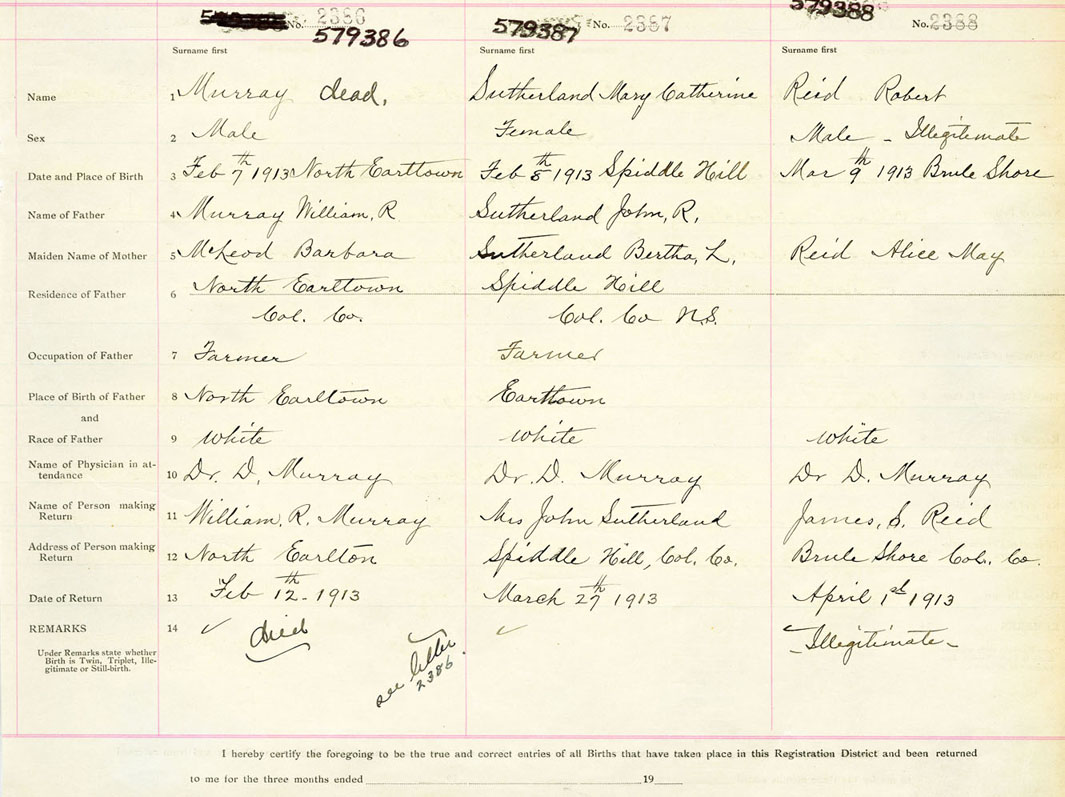 No. 2386 579387 No. 2387 579388 No. 2388
579386
Surname first Surname first Surname first
Name 1 Murray dead, Sutherland Mary Catherine Reid Robert
Sex 2 Male Female Male - Illegitimate
Date and Place of Birth 3 Feb 7th 1913 North Earltown Feb 8th 1913 Spiddle Hill Mar 9th 1913 Brule Shore
Name of Father 4 Murray William, R Sutherland John, R,
Maiden Name of Mother 5 McLeod Barbara Sutherland Bertha, L, Reid Alice May
Residence of Father 6 North Earltown Spiddle Hill
Col. Co. Col. Co N.S.
Occupation of Father 7 Farmer Farmer
Place of Birth of Father 8 North Earltown Earltown
and
Race of Father 9 white white white
Name of Physician in at-
tendance 10 Dr. D, Murray Dr. D. Murray Dr D. Murray
Name of Person making
Return 11 William, R. Murray Mrs John Sutherland James, S. Reid
Address of Person making
Return 12 North Earlton Spiddle Hill, Col. Co. Brule Shore Col. Co.
Date of Return 13 Feb 12th - 1913 March 27th 1913 April 1st 1913
REMARKS 14 ✓ died ✓ ✓ - Illegitimate -
Under Remarks state whether
Birth is Twin, Triplet, Ille-
gitimate or Still-birth.
see letter
2386
I hereby certify the foregoing to be the true and correct entries of all Births that have taken place in this Registration District and been returned
to me for the three months ended 19